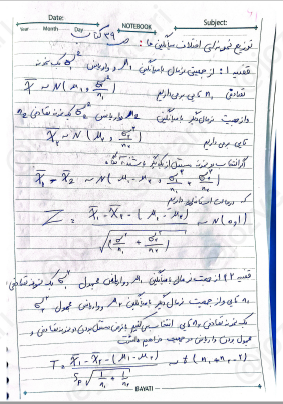 Date:
Subject:
Year Month Day
NOTEBOOK
توزیع نمونه‌ای اختلاف میانگین ها: ص ۳۹ کتاب
قضیه ۱: از جمعیتی نرمال با میانگین μ₁ و واریانس σ₁² یک نمونه
تصادفی n₁ تایی برمی‌داریم X̄₁ ~ N(μ₁, σ₁²/n₁)
و از جمعیت نرمال دیگر با میانگین μ₂ و واریانس σ₂² یک نمونه تصادفی n₂
تایی برمی داریم X̄₂ ~ N(μ₂, σ₂²/n₂)
اگر انتخاب دو نمونه مستقل از یکدیگر باشند آنگاه
X̄₁ - X̄₂ ~ N(μ₁ - μ₂, σ₁²/n₁ + σ₂²/n₂)
که در حالت استاندارد داریم
Z = X̄₁ - X̄₂ - (μ₁ - μ₂) / √(σ₁²/n₁ + σ₂²/n₂) ~ N(0,1)
قضیه ۲: از جمعیت نرمال با میانگین μ₁ و واریانس مجهول σ₁² یک نمونه تصادفی
n₁ تایی و از جمعیت نرمال دیگر با میانگین μ₂ و واریانس مجهول σ₂²
یک نمونه تصادفی n₂ تایی انتخاب می‌کنیم با فرض مستقل بودن دو نمونه تصادفی و
مجهول بودن واریانس دو جمعیت خواهیم داشت
T = X̄₁ - X̄₂ - (μ₁ - μ₂) / Sp√(1/n₁ + 1/n₂) ~ t(n₁ + n₂ - 2)
BAYATI